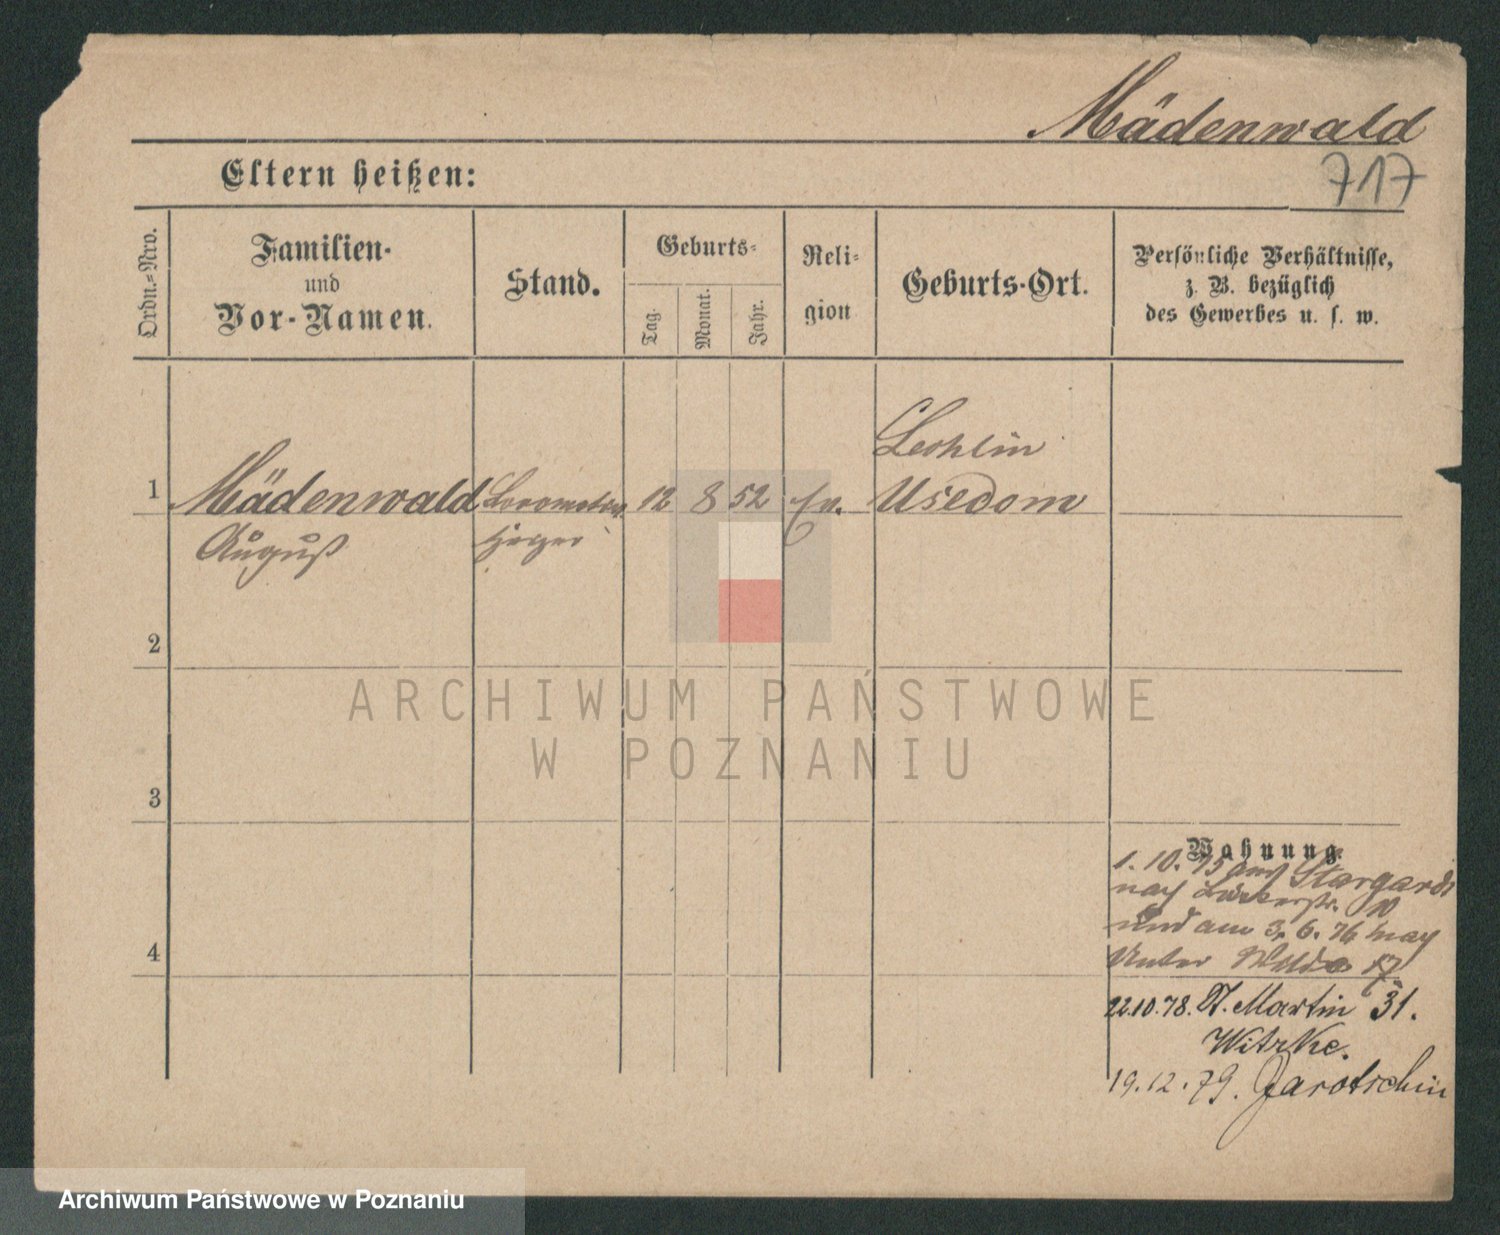 Mädenwald
717
Eltern heißen:
Ordn.=Nro.
Familien-
und
Vor-Namen.
Stand.
Geburts=
Tag.
Monat.
Jahr.
Reli=
gion
Geburts-Ort.
Persönliche Verhältnisse,
z. B. bezüglich
des Gewerbes u. s. w.
1
Mädenwald
August
Locomotiv
Heizer
12 8 52
Ev.
Usedom
2
3
4
ARCHIWUM PAŃSTWOWE
W POZNANIU
Wohnung.
1. 10. 75 aus Stargard
nach
und am 3. 6. 76 nach
Unter Wilda 17
22.10.78. St. Martin 31.
Witzke.
19.12.79. Jarotschin
Archiwum Państwowe w Poznaniu